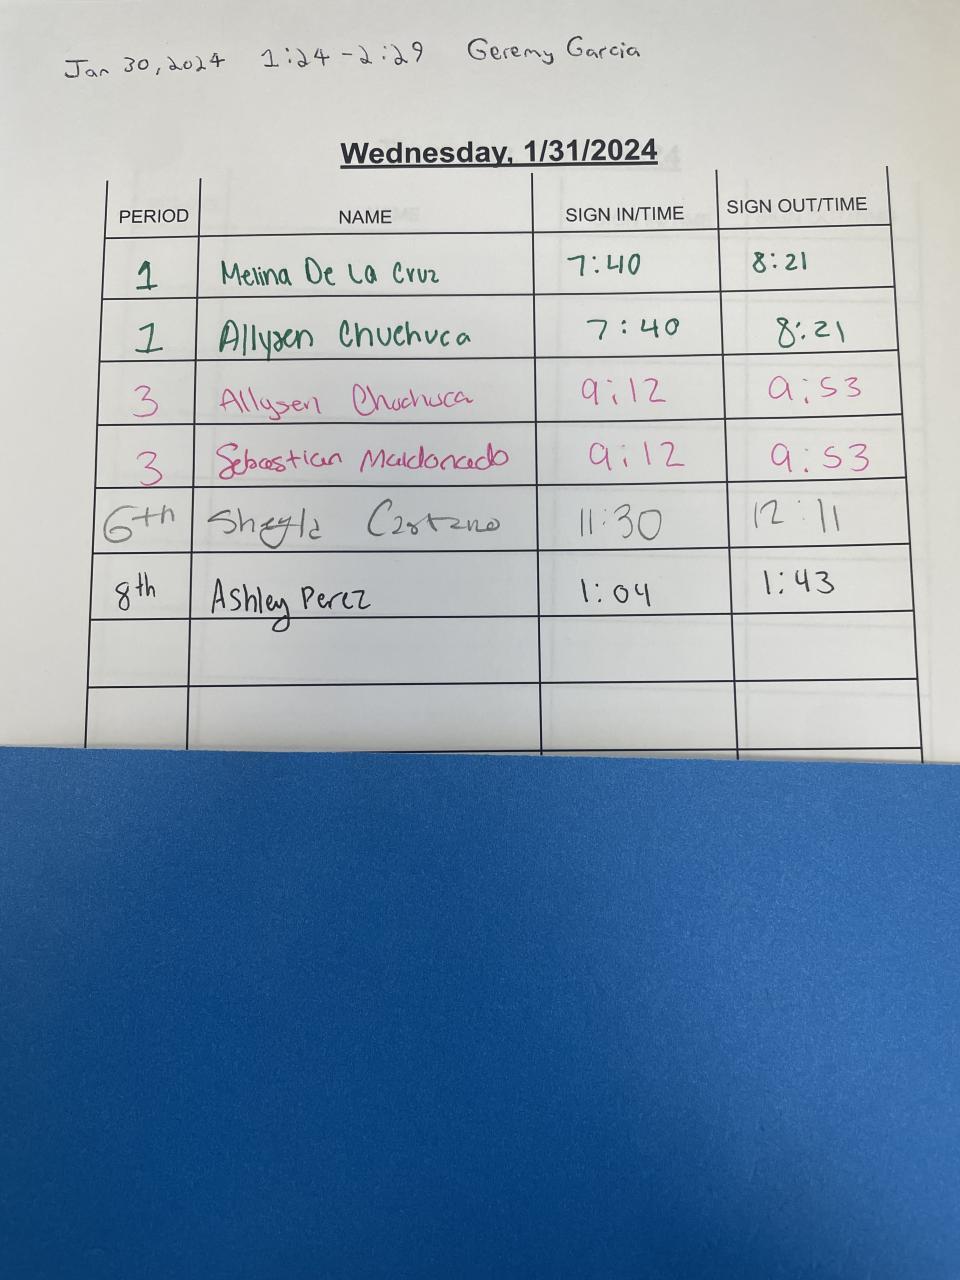 Jan 30, 2024 1:24-2:29 Geremy Garcia
Wednesday, 1/31/2024
PERIOD NAME SIGN IN/TIME SIGN OUT/TIME
1 Melina De La Cruz 7:40 8:21
1 Allysen Chuchuca 7:40 8:21
3 Allysen Chuchuca 9:12 9:53
3 Sebastian Maldonado 9:12 9:53
6th Sheyla Castano 11:30 12:11
8th Ashley Perez 1:04 1:43